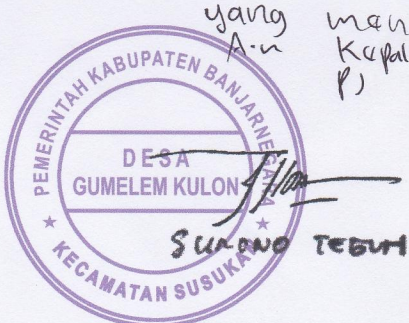 yang
A.n Kepal
Pj
PEMERINTAH KABUPATEN BANJARNEGARA
DESA
GUMELEM KULON
KECAMATAN SUSUKAN
SURONO TEGUH